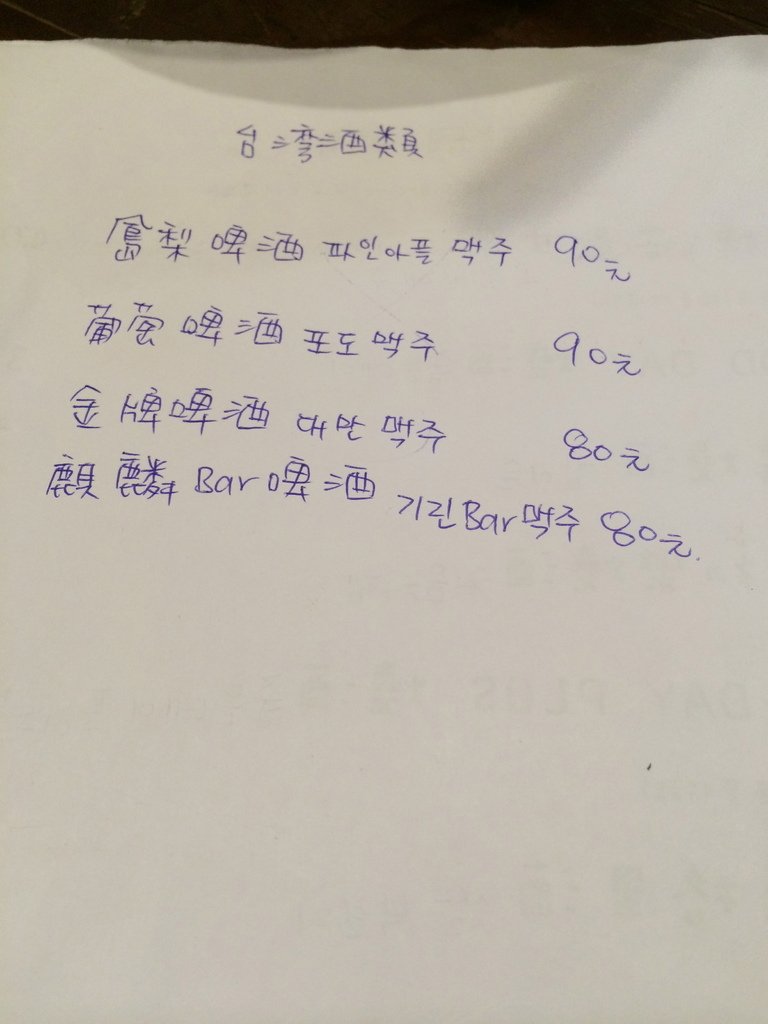 台灣酒類
鳳梨啤酒 파인애플 맥주 90元
葡萄啤酒 포도 맥주 90元
金牌啤酒 대만 맥주 80元
麒麟Bar啤酒 기린Bar맥주 80元.